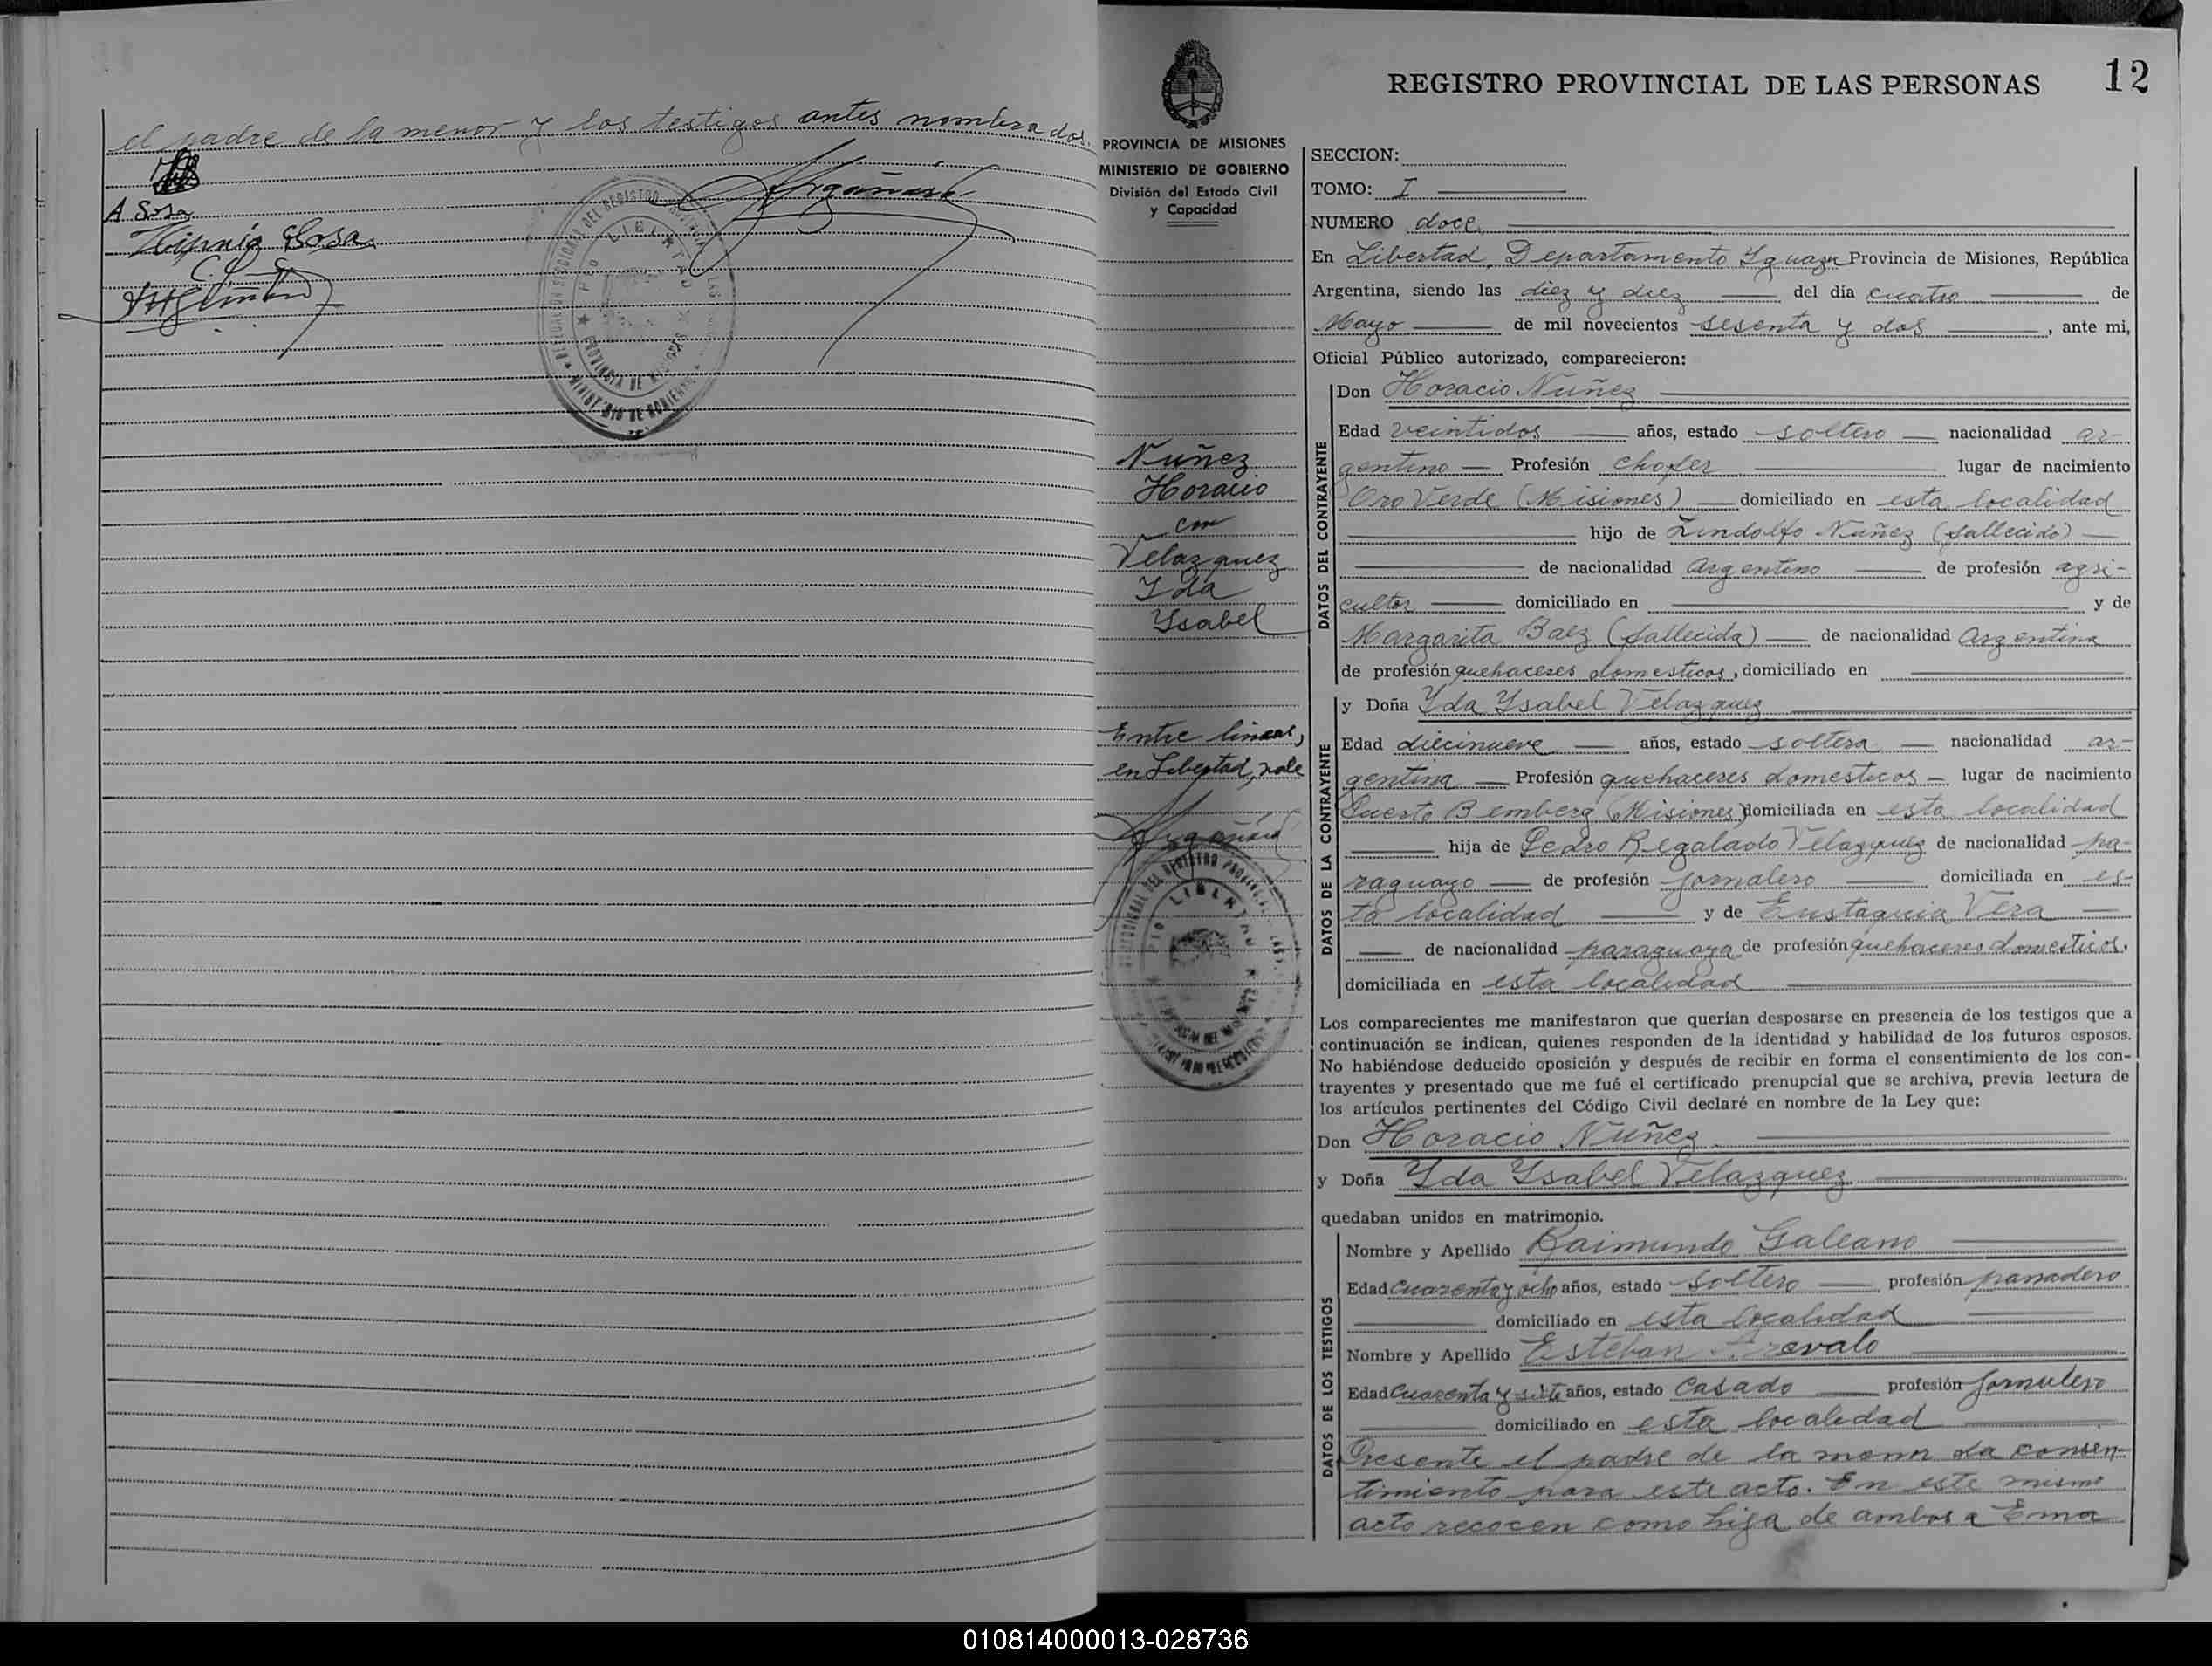 el padre de la menor y los testigos antes nombrados.
A Sosa
Higinia Sosa
12
REGISTRO PROVINCIAL DE LAS PERSONAS
PROVINCIA DE MISIONES
MINISTERIO DE GOBIERNO
División del Estado Civil
y Capacidad
Nuñez
Horacio
con
Velazquez
Yda
Ysabel
Entre lineas,
en Libertad, vale
SECCION:
TOMO: I
NUMERO doce
En Libertad, Departamento Yguazu Provincia de Misiones, República
Argentina, siendo las diez y diez del día cuatro de
Mayo de mil novecientos sesenta y dos, ante mi,
Oficial Público autorizado, comparecieron:
DATOS DEL CONTRAYENTE
Don Horacio Nuñez
Edad veintidos años, estado soltero nacionalidad ar-
gentino Profesión chofer lugar de nacimiento
Oro Verde (Misiones) domiciliado en esta localidad
hijo de Lindolfo Nuñez (fallecido)
de nacionalidad Argentino de profesión agri-
cultor domiciliado en y de
Margarita Baez (fallecida) de nacionalidad Argentina
de profesión quehaceres domesticos, domiciliado en
DATOS DE LA CONTRAYENTE
y Doña Yda Ysabel Velazquez
Edad diecinueve años, estado soltera nacionalidad ar-
gentina Profesión quehaceres domesticos lugar de nacimiento
Puerto Bemberg (Misiones) domiciliada en esta localidad
hija de Pedro Regalado Velazquez de nacionalidad pa-
raguayo de profesión jornalero domiciliada en es-
ta localidad y de Eustaquia Vera
de nacionalidad paraguaya de profesión quehaceres domesticos.
domiciliada en esta localidad
Los comparecientes me manifestaron que querían desposarse en presencia de los testigos que a
continuación se indican, quienes responden de la identidad y habilidad de los futuros esposos.
No habiéndose deducido oposición y después de recibir en forma el consentimiento de los con-
trayentes y presentado que me fué el certificado prenupcial que se archiva, previa lectura de
los artículos pertinentes del Código Civil declaré en nombre de la Ley que:
Don Horacio Nuñez
y Doña Yda Ysabel Velazquez
quedaban unidos en matrimonio.
DATOS DE LOS TESTIGOS
Nombre y Apellido Raimundo Galeano
Edad cuarenta y ocho años, estado soltero profesión panadero
domiciliado en esta localidad
Nombre y Apellido Esteban Arevalo
Edad cuarenta y siete años, estado Casado profesión jornalero
domiciliado en esta localidad
Presente el padre de la menor da consen-
timiento para este acto. En este mismo
acto recocen como hija de ambos a Ema
010814000013-028736